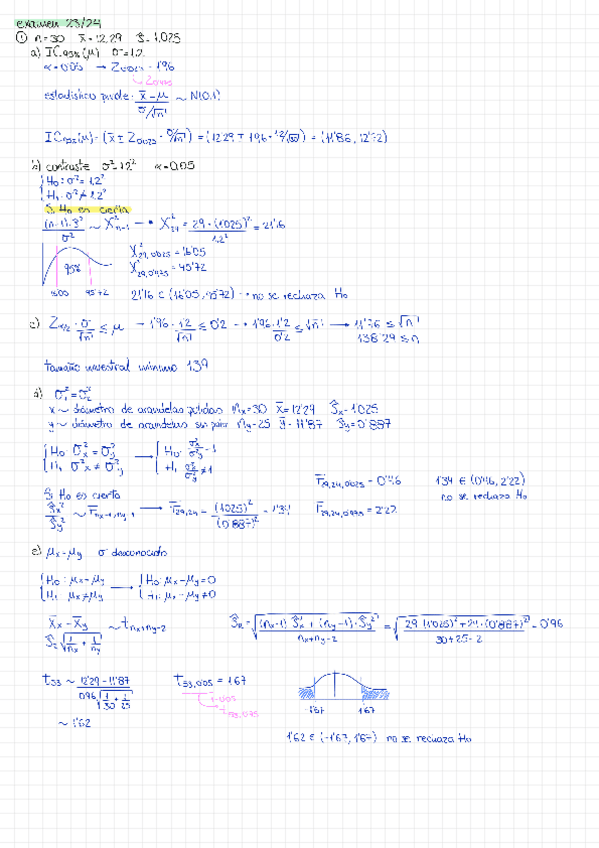 examen 23/24
① n=30 x̄=12.29 Ŝ=1,025
a) IC95%(μ) σ=1.2
α=0.05 → Z0.025 = 1'96
Z0.975
estadístico pivote: (x̄-μ)/(σ/√n) ~ N(0,1)
IC95%(μ) = (x̄ ± Z0.025 · σ/√n) = (12'29 ∓ 1'96 · 1'2/√30) = (11'86, 12'72)
b) contraste σ²=1.2² α=0.05
H0: σ²=1.2²
H1: σ²≠1.2²
Si H0 es cierta
(n-1)·Ŝ²/σ² ~ χ²n-1 → χ²29 = 29·(1.025)²/1.2² = 21'16
χ²29,0.025 = 16'05
χ²29,0.975 = 45'72
95%
16.05 45'72
21'16 ∈ (16'05, 45'72) → no se rechaza H0
c) Zα/2 · σ/√n ≤ μ → 1'96 · 1'2/√n ≤ 0'2 → 1'96 · 1'2/0'2 ≤ √n → 11'76 ≤ √n
138'29 ≤ n
tamaño muestral mínimo 139
d) σ²1 = σ²2
x ~ diámetro de arandelas pulidas nx=30 x̄=12'29 Ŝx=1.025
y ~ diámetro de arandelas sin pulir ny=25 ȳ=11'87 Ŝy=0'887
H0: σ²x = σ²y → H0: σ²x/σ²y = 1
H1: σ²x ≠ σ²y H1: σ²x/σ²y ≠ 1
Si H0 es cierta
Ŝ²x/Ŝ²y ~ Fnx-1,ny-1 → F29,24 = (1.025)²/(0'887)² = 1'34
F29,24,0.025 = 0'46
F29,24,0.975 = 2'22
1'34 ∈ (0'46, 2'22)
no se rechaza H0
e) μx=μy σ desconocida
H0: μx=μy → H0: μx-μy=0
H1: μx≠μy H1: μx-μy≠0
(x̄x - x̄y)/(ŜR √(1/nx + 1/ny)) ~ tnx+ny-2
ŜR = √(((nx-1)·Ŝ²x + (ny-1)·Ŝy²)/(nx+ny-2)) = √((29·(1'025)² + 24·(0'887)²)/(30+25-2)) = 0'96
t53 ~ (12'29-11'87)/(0.96√(1/30 + 1/25))
~ 1'62
t53,0.05 = 1.67
1-0.05
-1'67 1.67
1'62 ∈ (-1'67, 1'67) no se rechaza H0